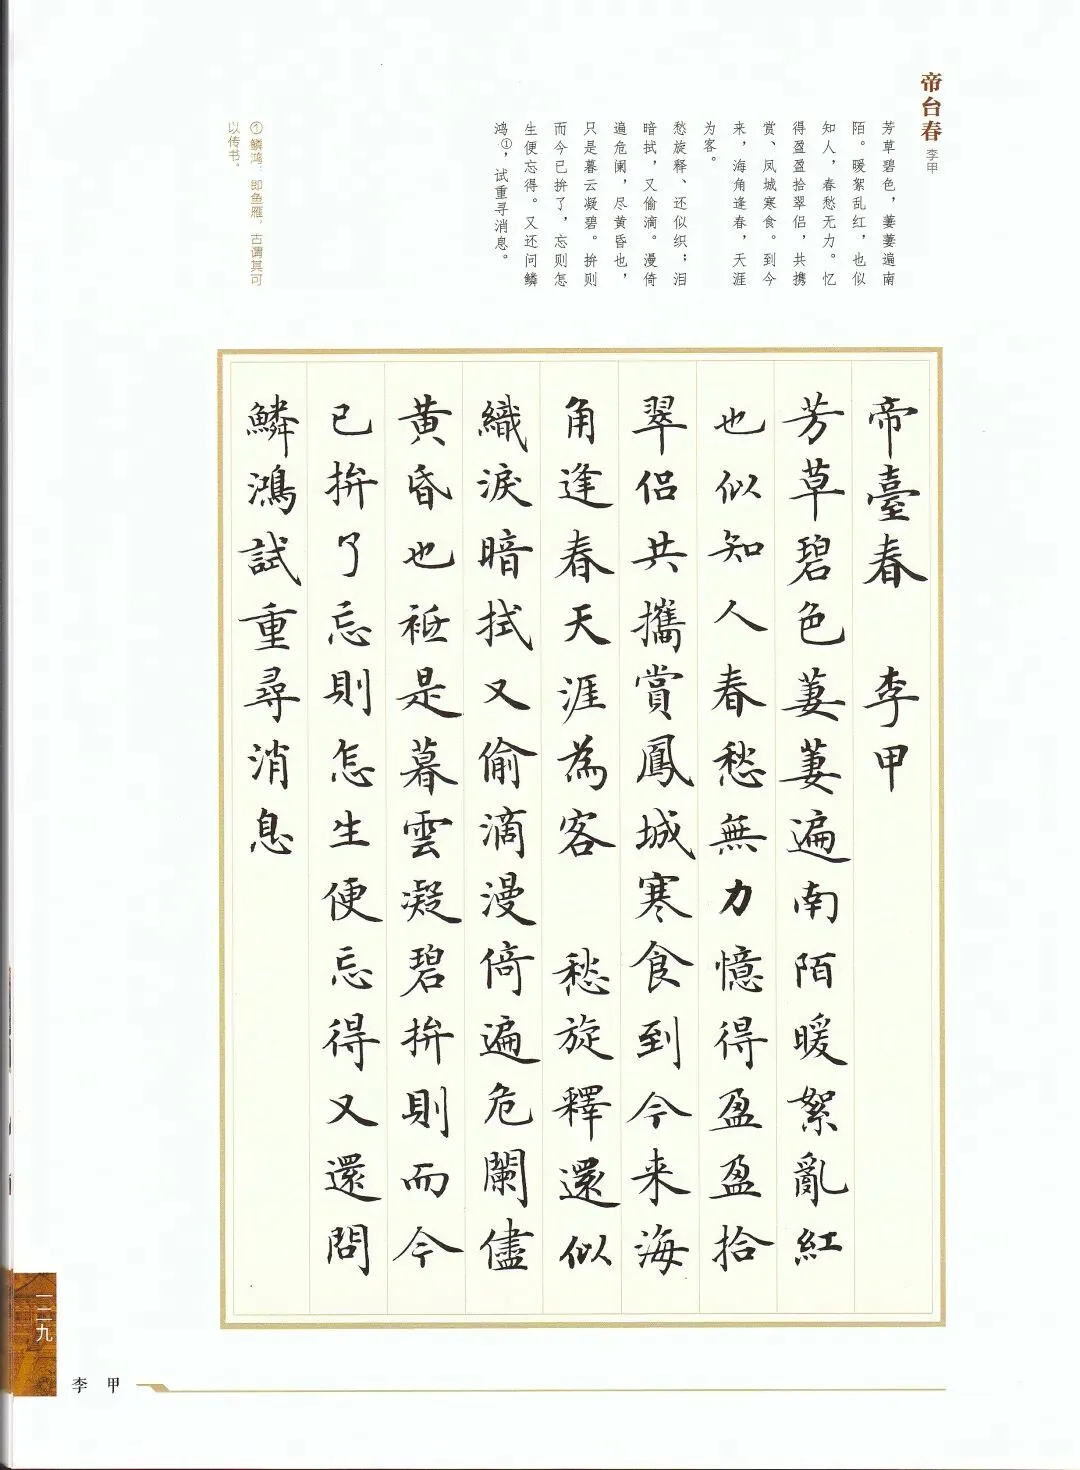 帝台春
李甲
芳草碧色，萋萋遍南
陌。暖絮乱红，也似
知人，春愁无力。忆
得盈盈拾翠侣，共携
赏、凤城寒食。到今
来，海角逢春，天涯
为客。
愁旋释、还似织；泪
暗拭，又偷滴。漫倚
遍危阑，尽黄昏也，
只是暮云凝碧。拚则
而今已拚了，忘则怎
生便忘得。又还问鳞
鸿①，试重寻消息。
①鳞鸿：即鱼雁，古谓其可
以传书。
帝臺春 李甲
芳草碧色萋萋遍南陌暖絮亂紅
也似知人春愁無力憶得盈盈拾
翠侣共攜賞鳳城寒食到今来海
角逢春天涯為客 愁旋釋還似
織淚暗拭又偷滴漫倚遍危闌儘
黄昏也袛是暮雲凝碧拚則而今
已拚了忘則怎生便忘得又還問
鱗鴻試重尋消息
一二九
李甲